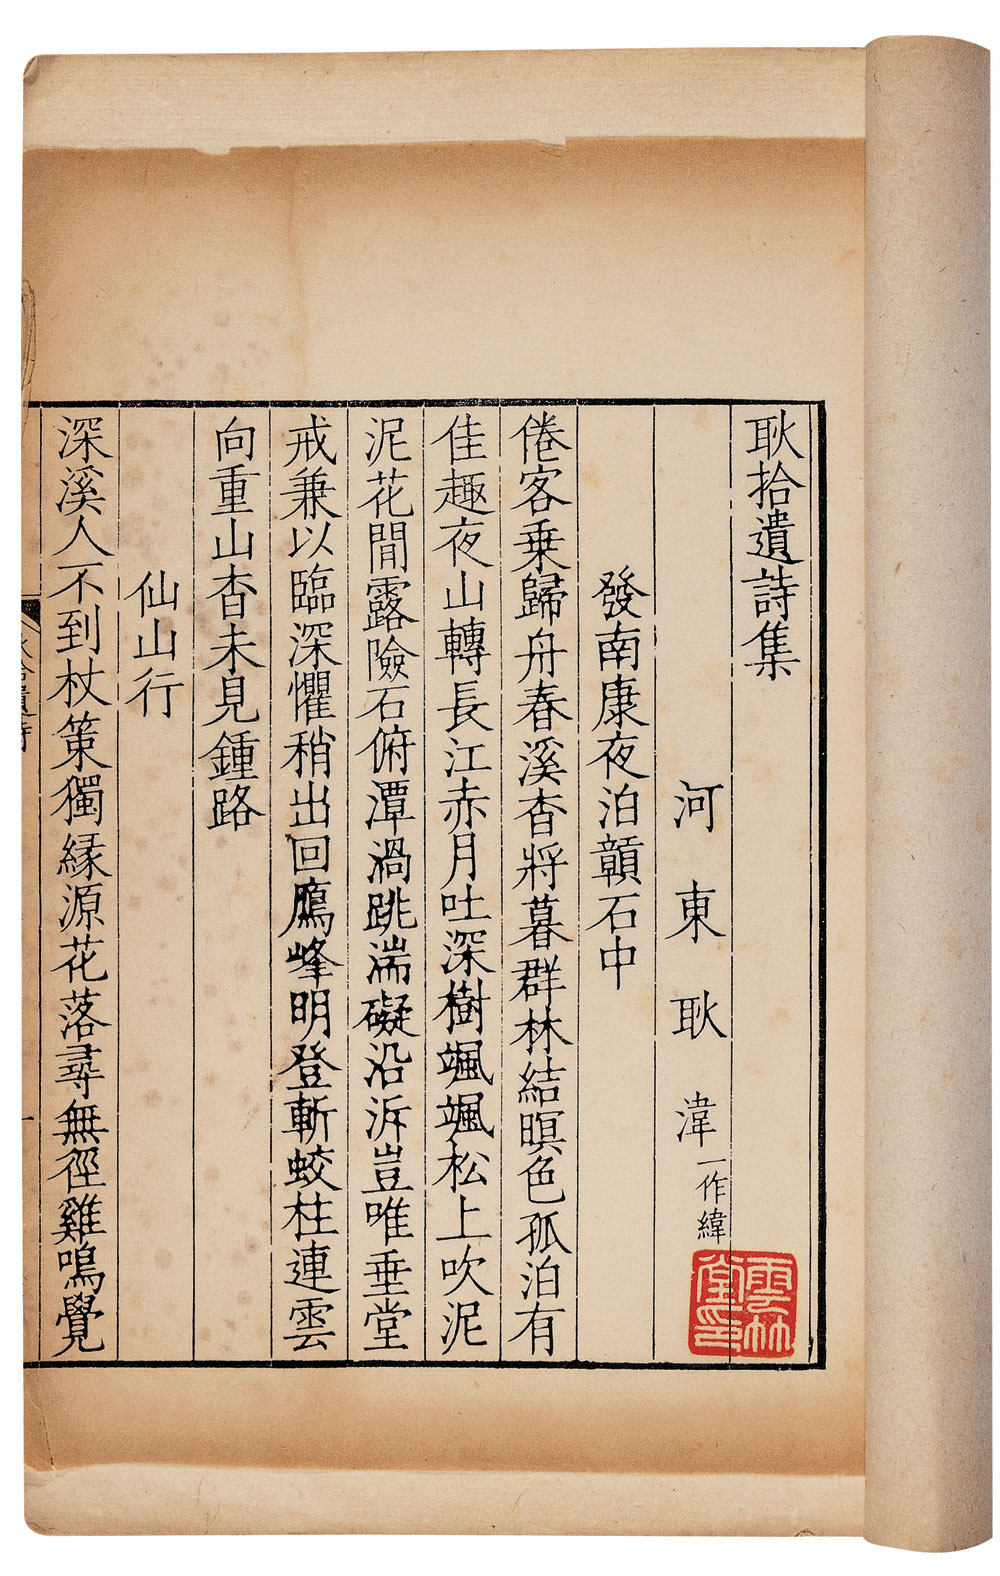 耿拾遺詩集
河東耿湋一作緯
發南康夜泊贑石中
倦客乗歸舟春溪杳將暮群林結暝色孤泊有
佳趣夜山轉長江赤月吐深樹颯颯松上吹泥
泥花間露險石俯潭渦跳湍礙沿泝豈唯垂堂
戒兼以臨深懼稍出回鴈峰明登斬蛟柱連雲
向重山杳未見鍾路
仙山行
深溪人不到杖策獨緣源花落尋無徑雞鳴覺
雲林堂印